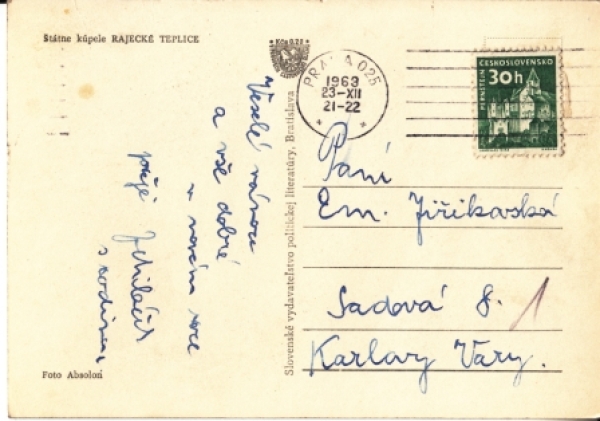 Štátne kúpele RAJECKÉ TEPLICE
Veselé vánoce
a vše dobré
v novém roce
přeje
s rodinou
Foto Absoloń
Slovenské vydavateľstvo politickej literatúry, Bratislava
PRAHA 025
1963
23-XII
21-22
ČESKOSLOVENSKO
30h
PERNŠTEJN
Paní
Em. Jiřikovská
Sadová 8.
1
Karlovy Vary.